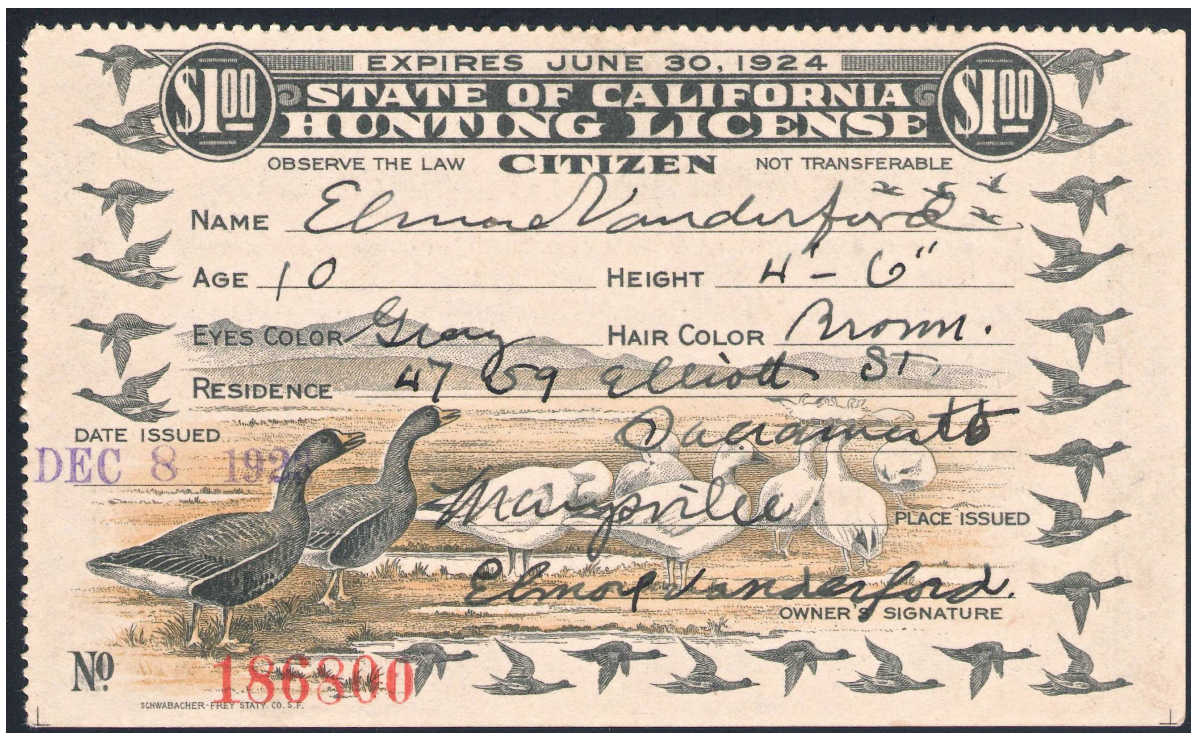 EXPIRES JUNE 30, 1924
$1.00 STATE OF CALIFORNIA $1.00
HUNTING LICENSE
OBSERVE THE LAW CITIZEN NOT TRANSFERABLE
NAME Elmore Vanderford
AGE 10 HEIGHT 4' - 6"
EYES COLOR Gray HAIR COLOR Brown.
RESIDENCE 4759 Elliott St.
Sacramento
DATE ISSUED
DEC 8 1923
Marysville. PLACE ISSUED
Elmore Vanderford.
OWNER'S SIGNATURE
No. 186800
SCHWABACHER-FREY STATY. CO. S.F.